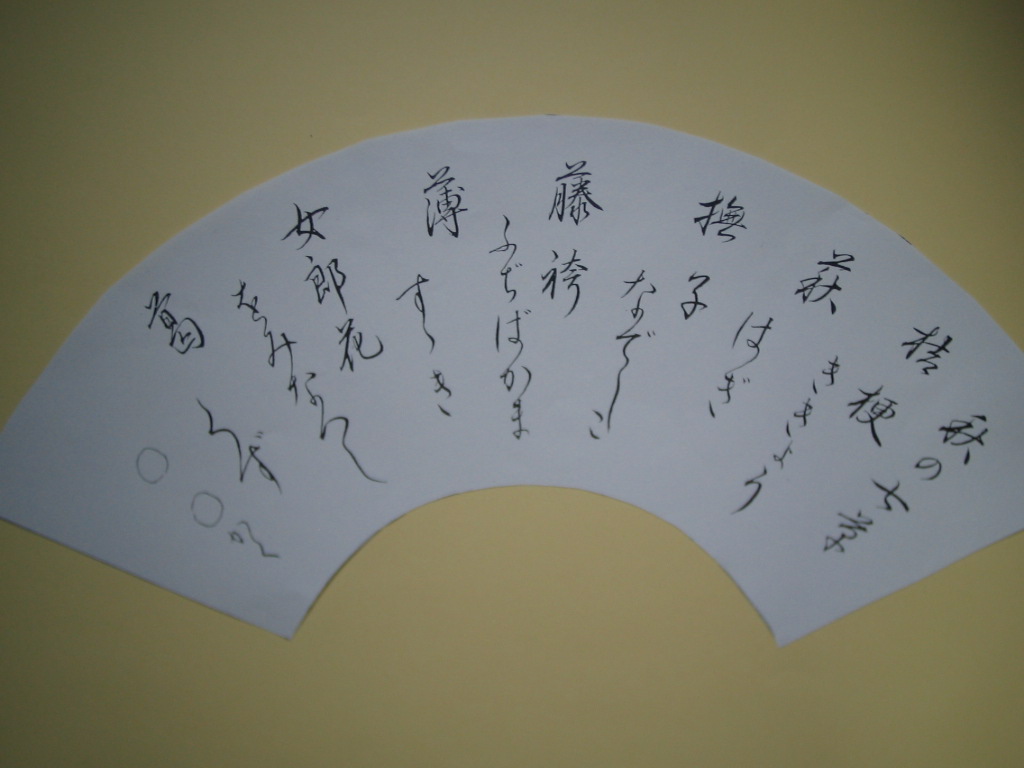 秋の七草
桔梗
ききょう
萩
はぎ
撫子
なでしこ
藤袴
ふぢばかま
薄
すゝき
女郎花
をみなへし
葛
くず
○○かく